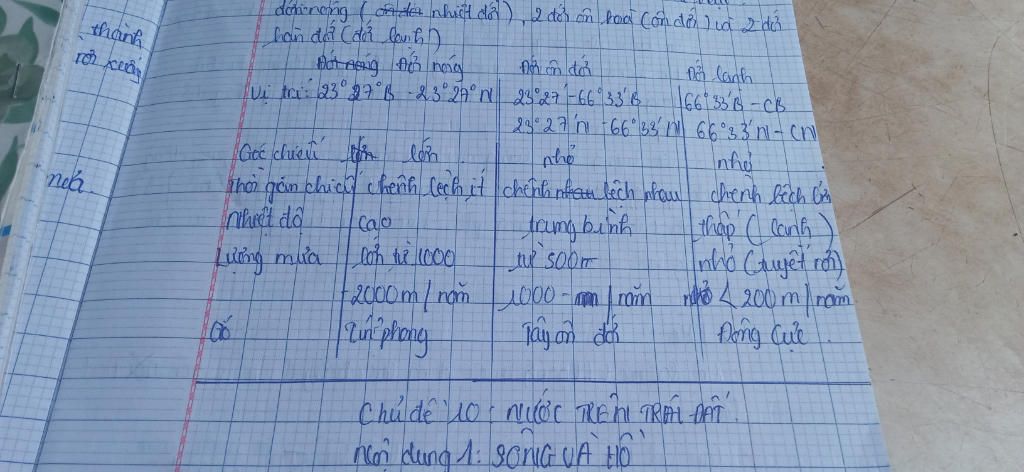 thành
rơi xuống
nếu
đới nóng (nhiệt đới), 2 đới ôn hoà (ôn đới) và 2 đới
hàn đới (đới lạnh)
Đới nóng Đới ôn đới Đới lạnh
Vị trí: 23°27°B - 23°27°N 23°27' - 66°33'B 66°33'B - CB
23°27'N - 66°33'N 66°33'N - CN
Góc chiếu lớn nhỏ nhỏ
Thời gian chiếu chênh lệch ít chênh lệch nhau chênh lệch lớn
nhiệt độ cao trung bình thấp (lạnh)
Lượng mưa lớn từ 1000 từ 500m nhỏ (tuyết rơi)
-2000m/năm 1000 - /năm < 200m/năm
Gió Tín phong Tây ôn đới Đông Cực.
Chủ đề 10: NƯỚC TRÊN TRÁI ĐẤT.
Nội dung 1: SÔNG VÀ HỒ